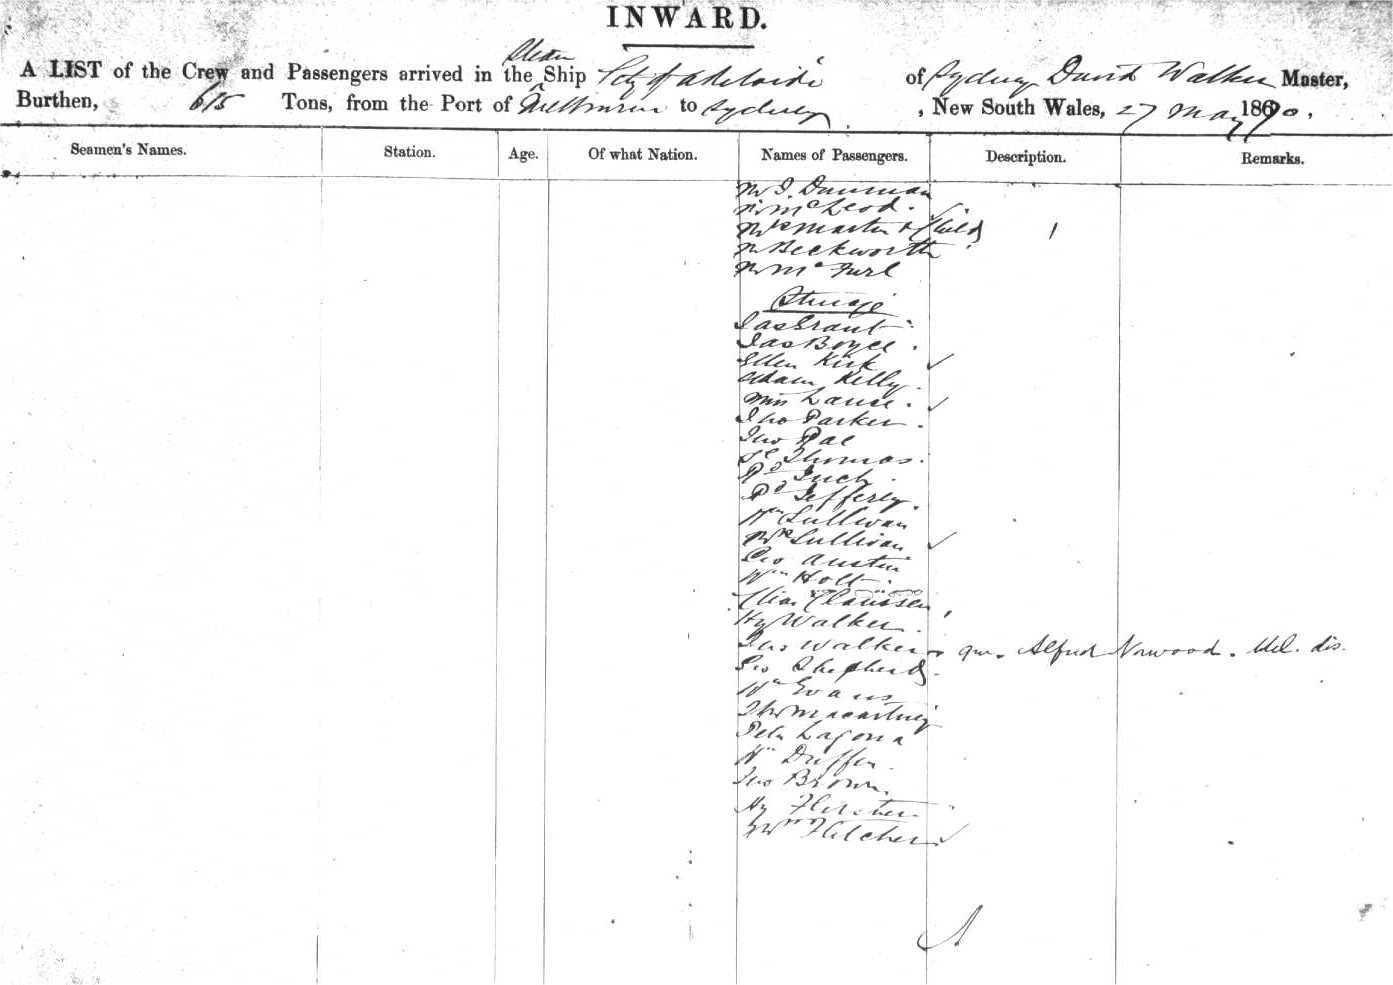 INWARD.
Steam
A LIST of the Crew and Passengers arrived in the Ship City of Adelaide of Sydney David Walker Master,
Burthen, 615 Tons, from the Port of Melbourne to Sydney, New South Wales, 27 May 1870.
Seamen's Names. Station. Age. Of what Nation. Names of Passengers. Description. Remarks.
Mr McLeod.
Mrs Martin & Child 1
Mr Beckworth
Steerage
Jas Grant
Jas Boyce.
Ellen Kirk
Adam Kelly.
Jno Parker.
Jno Rae
Thomas.
Rd
Rd Jefferey.
Wm Sullivan
Mrs Sullivan
Geo Austin
Wm Holt.
Chas Claussen
Hy Walker.
Jno Walker or qu. Alfred Norwood. Mel. dis.
Geo Shepherd.
Wm Evans
Macartney
Peter Lagona
Wm Duffen
Jno Brown.
Hy Fletcher
Fletcher